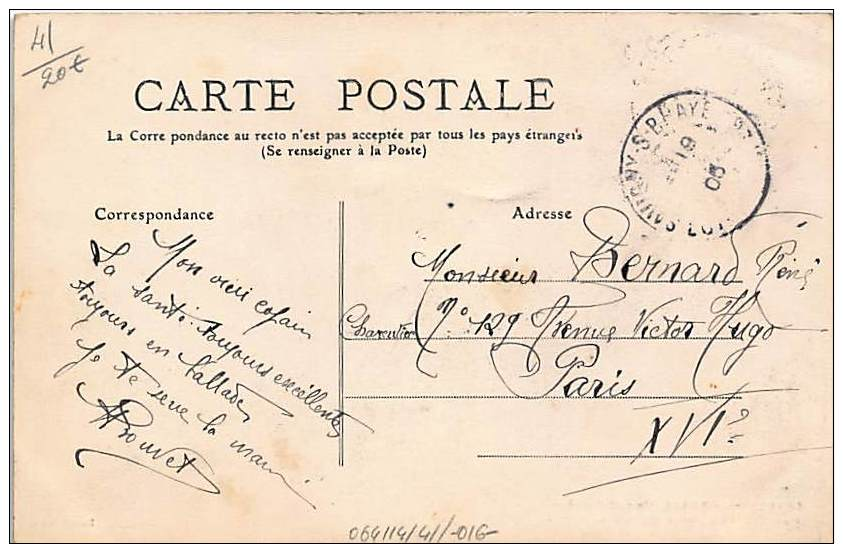 41
20€
CARTE POSTALE
La Corre pondance au recto n'est pas acceptée par tous les pays étrangers
(Se renseigner à la Poste)
SAVIGNY-S-BRAYE
19
05
Correspondance
Mon vieil copain
La santé toujours excellente,
toujours en ballade,
Je te serre la main
Bouvet
Adresse
Monsieur Bernard René
Charentier N° 129 Avenue Victor Hugo
Paris
XVIe
064114/41/-016-